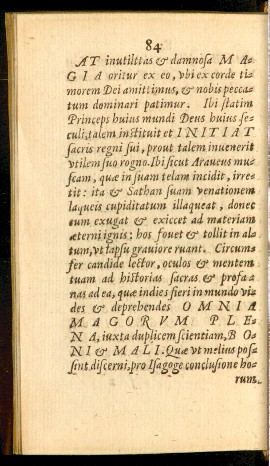 84
AT inutilttas & damnosa MA-
GIA oritur ex eo, vbi ex corde ti-
morem Dei amittimus, & nobis pecca-
tum dominari patimur. Ibi statim
Princeps huius mundi Deus huius se-
culi, talem instituit et INITIAT
sacris regni sui, prout talem inuenerit
vtilem suo rogno. Ibi sicut Araneus mu-
scam, quæ in suam telam incidit, irre-
tit: ita & Sathan suam venationem
laqueis cupiditatum illaqueat, donec
eum exugat & exiccet ad materiam
æterni ignis: hos fouet & tollit in al-
tum, vt lapsu grauiore ruant. Circum-
fer candide lector, oculos & mentem
tuam ad historias sacras & profa-
nas ad ea, quæ indies fieri in mundo vi-
des & deprehendes OMNIA
MAGORVM PLE-
NA, iuxta duplicem scientiam, BO
NI & MALI. Quæ vt melius pos-
sint discerni, pro Isagoge conclusione ho-
rum